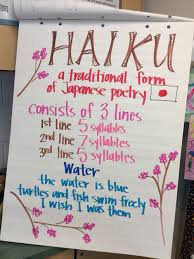 HAIKU
a traditional form
of Japanese poetry
consists of 3 lines
1st line 5 syllables
2nd line 7 syllables
3rd line 5 syllables
Water
the water is blue
turtles and fish swim freely
I wish I was them